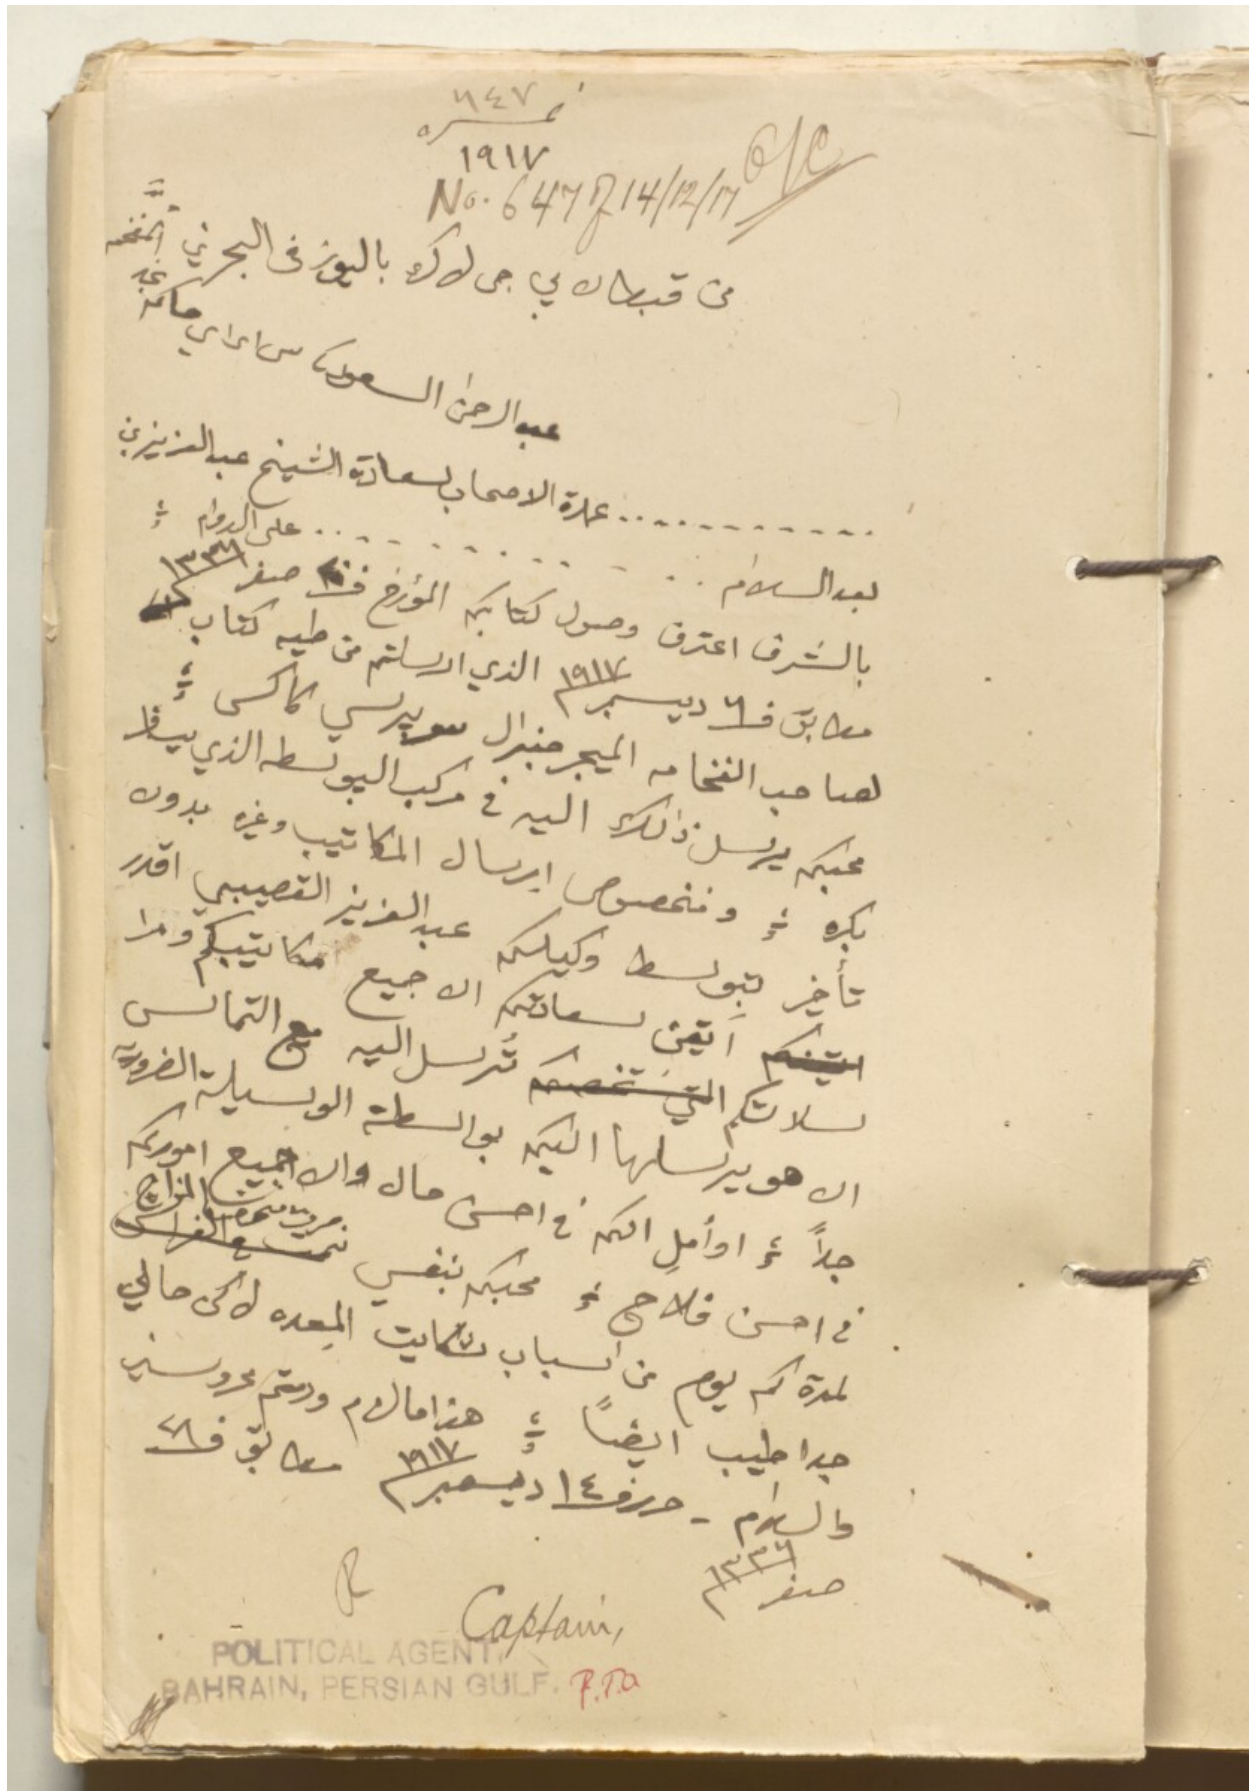 نمره ٦٤٧
١٩١٧
O/C
No. 647 of 14/12/17
من قبطان بي جي لاك باليوز في البحرين الى المفخم
عبد الرحمن السعود كي سي اي اي حاكم نجد
............ عمدة الاصحاب سعادة الشيخ عبد العزيز بن
بعد السلام ............ على الدوام
بالشرف اعترف وصول كتابكم المؤرخ في صفر ١٣٣٦
مطابق ف ٦ ديسمبر ١٩١٧ الذي ارسلتم من طيه كتاب
لصاحب الفخامه الميجر جنرال سر پرسي كاكس
محبكم يرسل ذالك اليه في مركب البوسطه الذي يسافر
بكره وفنخصوص ارسال المكاتيب وغيره بدون
تأخير بتوسط وكيلكم عبد العزيز القصيبي اقدر
أيقن سعادتكم ان جميع مكاتيبكم ومرا
سلاتكم تُرسل اليه مع التماس
ان هو يرسلها اليكم بواسطة الوسيلة الضرورية
جداً اوأمل انكم في احسن حال وان جميع اموركم
في احسن فلاح محبكم بنفسي صرت منحرف المزاج
لمدة كم يوم من اسباب شكايت المِعده لاكن حالي
جدا طيب ايضاً هذا ما لزم ودمتم محروسين
والسلام - حرر ف ١٤ ديسمبر ١٩١٧ مطابق ف ٢٨
صفر ١٣٣٦
Captain,
POLITICAL AGENT,
BAHRAIN, PERSIAN GULF.
P.T.O